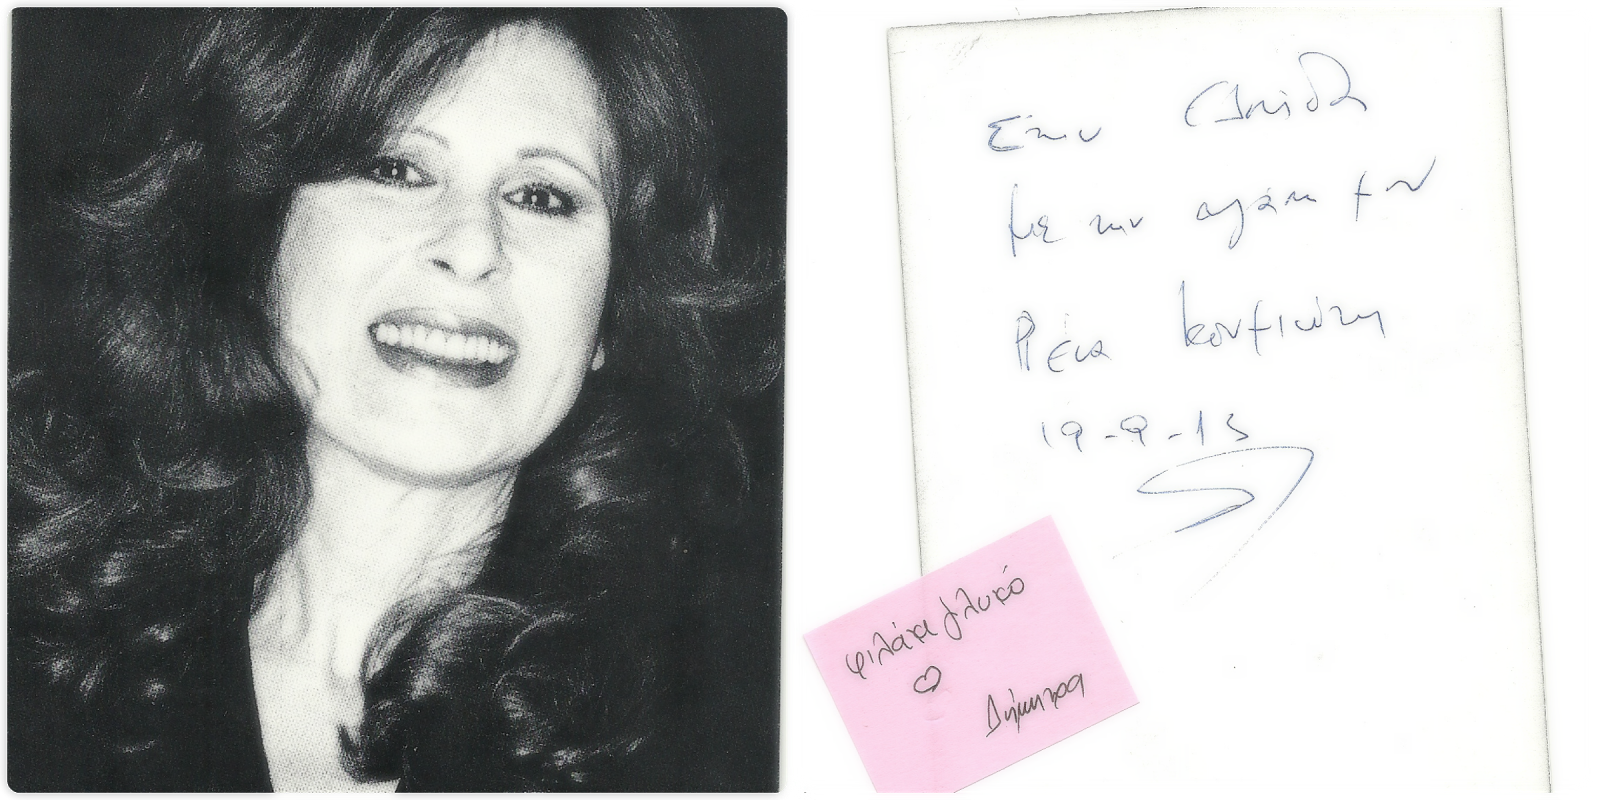 Στην Ελπίδα
με την αγάπη μου
Ρένα Κουμιώτη
19-9-13
φιλάκι γλυκό
♡
Δήμητρα